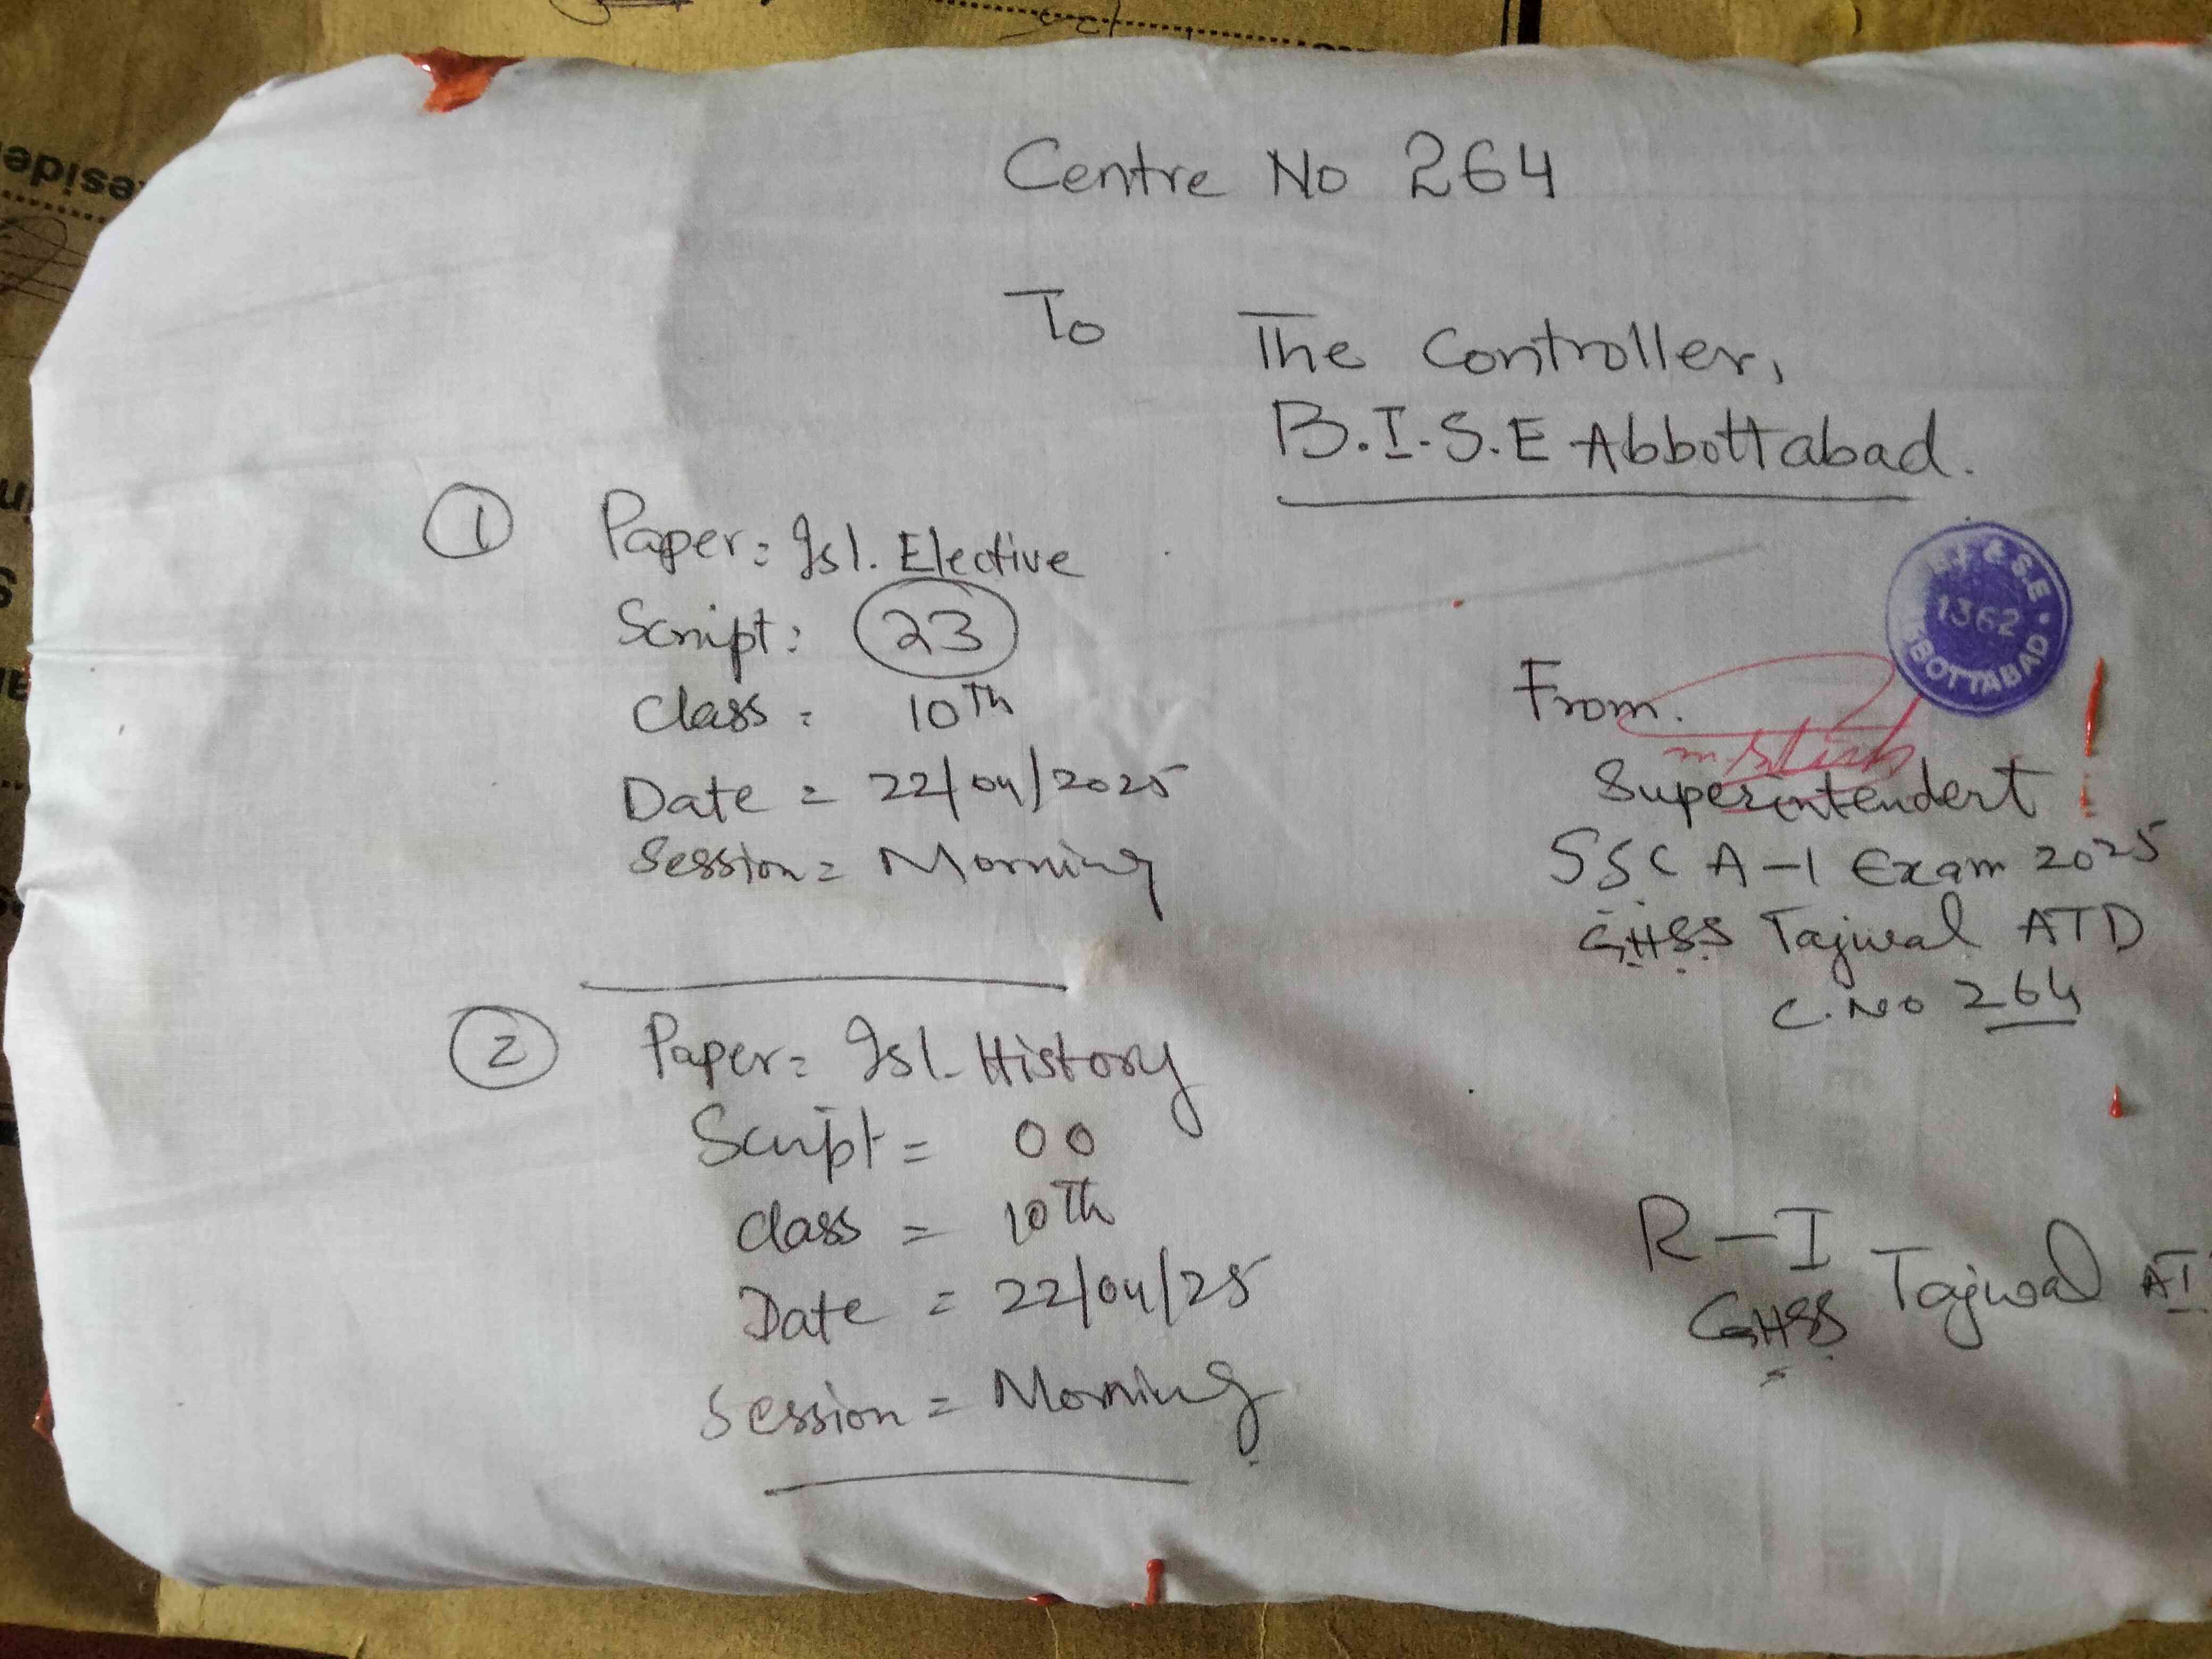 Centre No 264
To
The Controller,
B.I.S.E Abbottabad.
1 Paper: Isl. Elective
Script: 23
Class: 10Th
Date = 22/04/2025
Session = Morning
2 Paper= Isl. History
Script = 00
Class = 10Th
Date = 22/04/25
Session = Morning
1362
ABBOTTABAD
From.
Superintendent
SSC A-I Exam 2025
GHSS Tajwal ATD
C.No 264
R-I
GHSS Tajwal AT